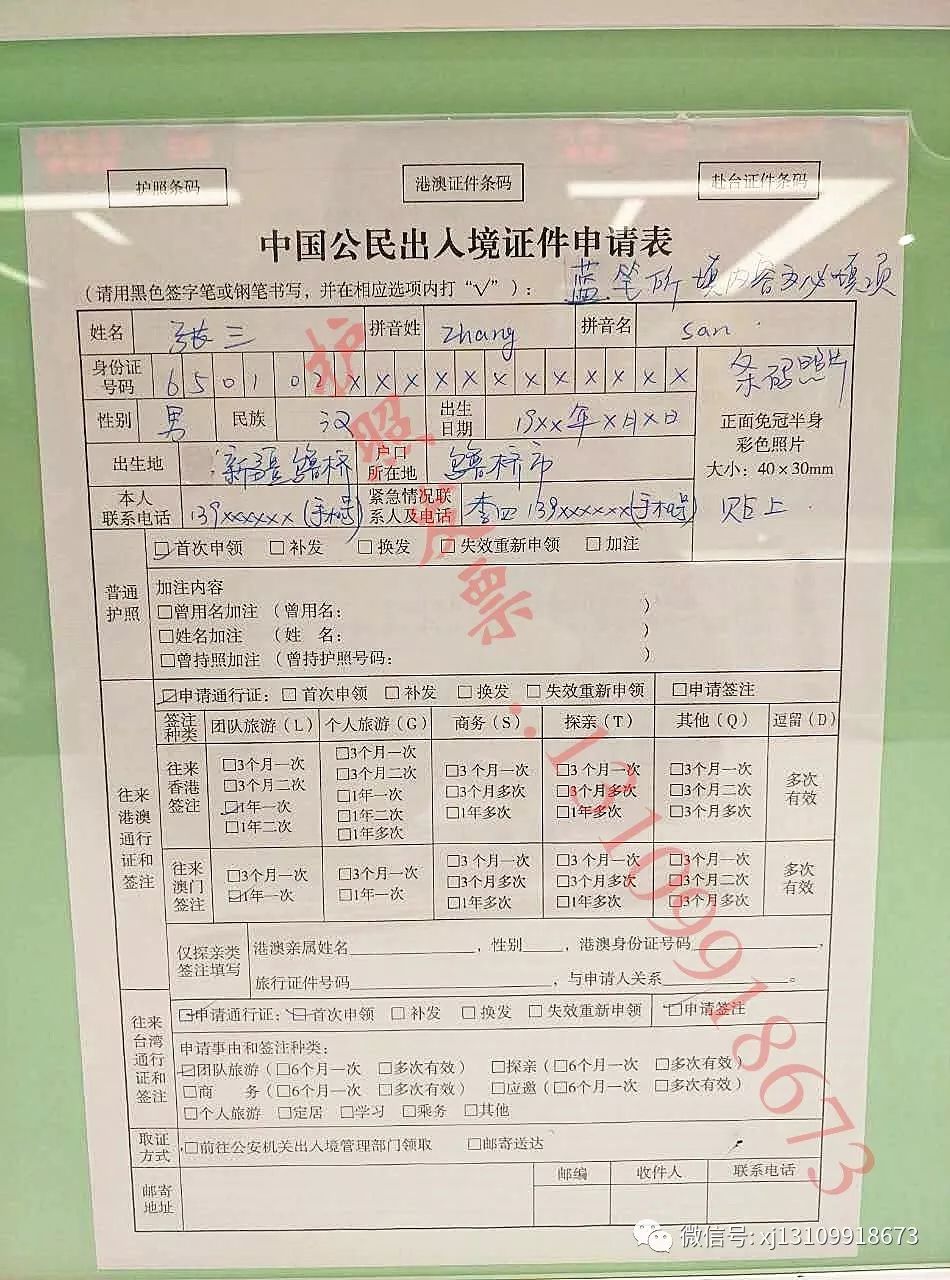 护照条码 港澳证件条码 赴台证件条码
中国公民出入境证件申请表
(请用黑色签字笔或钢笔书写,并在相应选项内打“√”):
蓝笔所填内容为必填项
姓名 张三 拼音姓 Zhang 拼音名 san
身份证号码 650102XXXXXXXXXXXX
条码照片
性别 男 民族 汉 出生日期 19XX年X月X日
正面免冠半身
彩色照片
大小:40×30mm
贴上
出生地 新疆 户口所在地 市
本人联系电话 139xxxxxx(手机号) 紧急情况联系人及电话 李四 139xxxxxx(手机号)
普通护照
□首次申领 □补发 □换发 □失效重新申领 □加注
加注内容
□曾用名加注 (曾用名: )
□姓名加注 (姓 名: )
□曾持照加注 (曾持护照号码: )
往来港澳通行证和签注
□申请通行证: □首次申领 □补发 □换发 □失效重新申领 □申请签注
签注种类 团队旅游(L) 个人旅游(G) 商务(S) 探亲(T) 其他(Q) 逗留(D)
往来香港签注
□3个月一次
□3个月二次
□1年一次
□1年二次
□3个月一次
□3个月二次
□1年一次
□1年二次
□1年多次
□3个月一次
□3个月多次
□1年多次
□3个月一次
□3个月多次
□1年多次
□3个月一次
□3个月二次
□3个月多次
多次有效
往来澳门签注
□3个月一次
□1年一次
□3个月一次
□1年一次
□3个月一次
□3个月多次
□1年多次
□3个月一次
□3个月多次
□1年多次
□3个月一次
□3个月二次
□3个月多次
多次有效
仅探亲类签注填写
港澳亲属姓名 ,性别 ,港澳身份证号码 ,
旅行证件号码 ,与申请人关系 。
往来台湾通行证和签注
□申请通行证: □首次申领 □补发 □换发 □失效重新申领 □申请签注
申请事由和签注种类:
□团队旅游(□6个月一次 □多次有效) □探亲(□6个月一次 □多次有效)
□商 务(□6个月一次 □多次有效) □应邀(□6个月一次 □多次有效)
□个人旅游 □定居 □学习 □乘务 □其他
取证方式 □前往公安机关出入境管理部门领取 □邮寄送达
邮寄地址 邮编 收件人 联系电话
:13109918673
微信号: xj13109918673